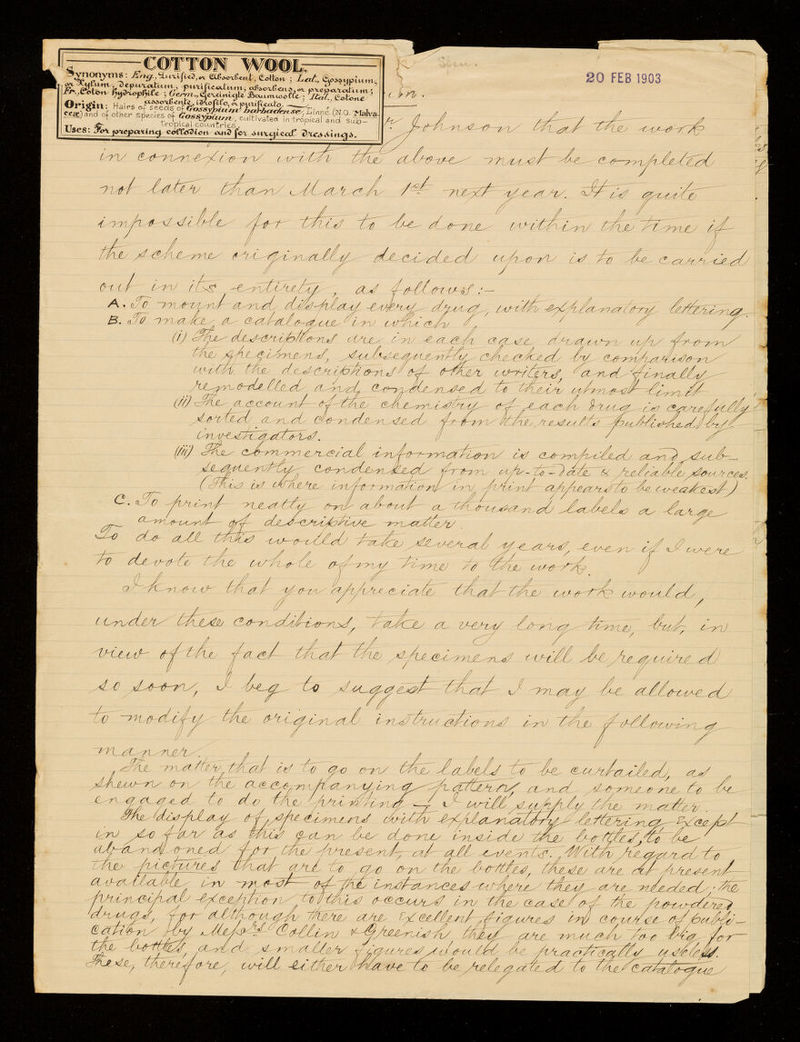 COTTON WOOL.
Synonyms: Eng., Purified, or Absorbent, Cotton; Lat., Gossypium,
or Xylum, depuratum, purificatum, absorbens, or preparatum;
Fr., Coton hydrophile; Germ., Gereinigte Baumwolle; Ital., Cotone
assorbente, idrofilo, o purificato.
Origin: Hairs of seeds of Gossypium barbadense, Linné (N.O. Malva-
ceæ) and of other species of Gossypium, cultivated in tropical and sub-
tropical countries.
Uses: For preparing collodion and for surgical dressings.
20 FEB 1903
Johnson that the work
in connexion with the above must be completed
not later than March 1st next year. It is quite
impossible for this to be done within the time if
the scheme originally decided upon is to be carried
out in its entirety, as follows:-
A. To mount and display every drug, with explanatory lettering.
B. To make a catalogue in which
(i) The descriptions are in each case drawn up from
the specimens, subsequently checked by comparison
with the descriptions of other writers, and finally
remodelled and condensed to their utmost limit
(ii) The account of the chemistry of each drug is carefully
sorted and condensed from the results published by
investigators.
(iii) The commercial information is compiled and sub-
sequently condensed from up-to-date & reliable sources.
(This is where information in print appears to be weakest)
C. To print neatly on about a thousand labels a large
amount of descriptive matter.
To do all this would take several years, even if I were
to devote the whole of my time to the work.
I know that you appreciate that the work would,
under these conditions, take a very long time, but, in
view of the fact that the specimens will be required
so soon, I beg to suggest that I may be allowed
to modify the original instructions in the following
manner.
The matter that is to go on the labels to be curtailed, as
shewn on the accompanying pattern, and someone to be
engaged to do the printing – I will supply the matter.
The display of specimens with explanatory lettering except
in so far as this can be done inside the bottles, to be
abandoned for the present, at all events. With regard to
the pictures that are to go on the bottles, these are at present
available in most of the instances where they are needed; the
principal exception to this occurs in the case of the powdered
drugs, for although there are excellent figures in course of publi-
cation by Messrs Collin & Greenish, they are much too big for
the bottles, and smaller figures would be practically useless.
These, therefore, will either have to be relegated to the catalogue